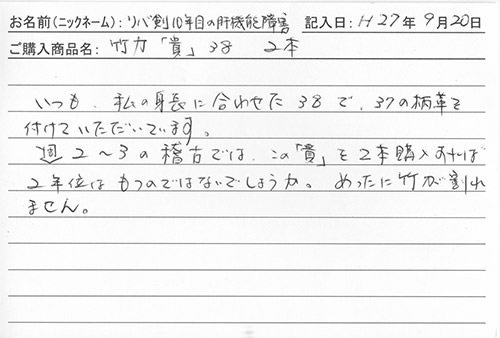 お名前(ニックネーム):リバ剣10年目の肝機能障害 記入日:H27年9月20日
ご購入商品名:竹刀「貴」38 2本
いつも、私の身長に合わせた38で、37の柄革を
付けていただいています。
週2～3の稽古では、この「貴」を2本購入すれば
2年位はもつのではないでしょうか。めったに竹が割れ
ません。